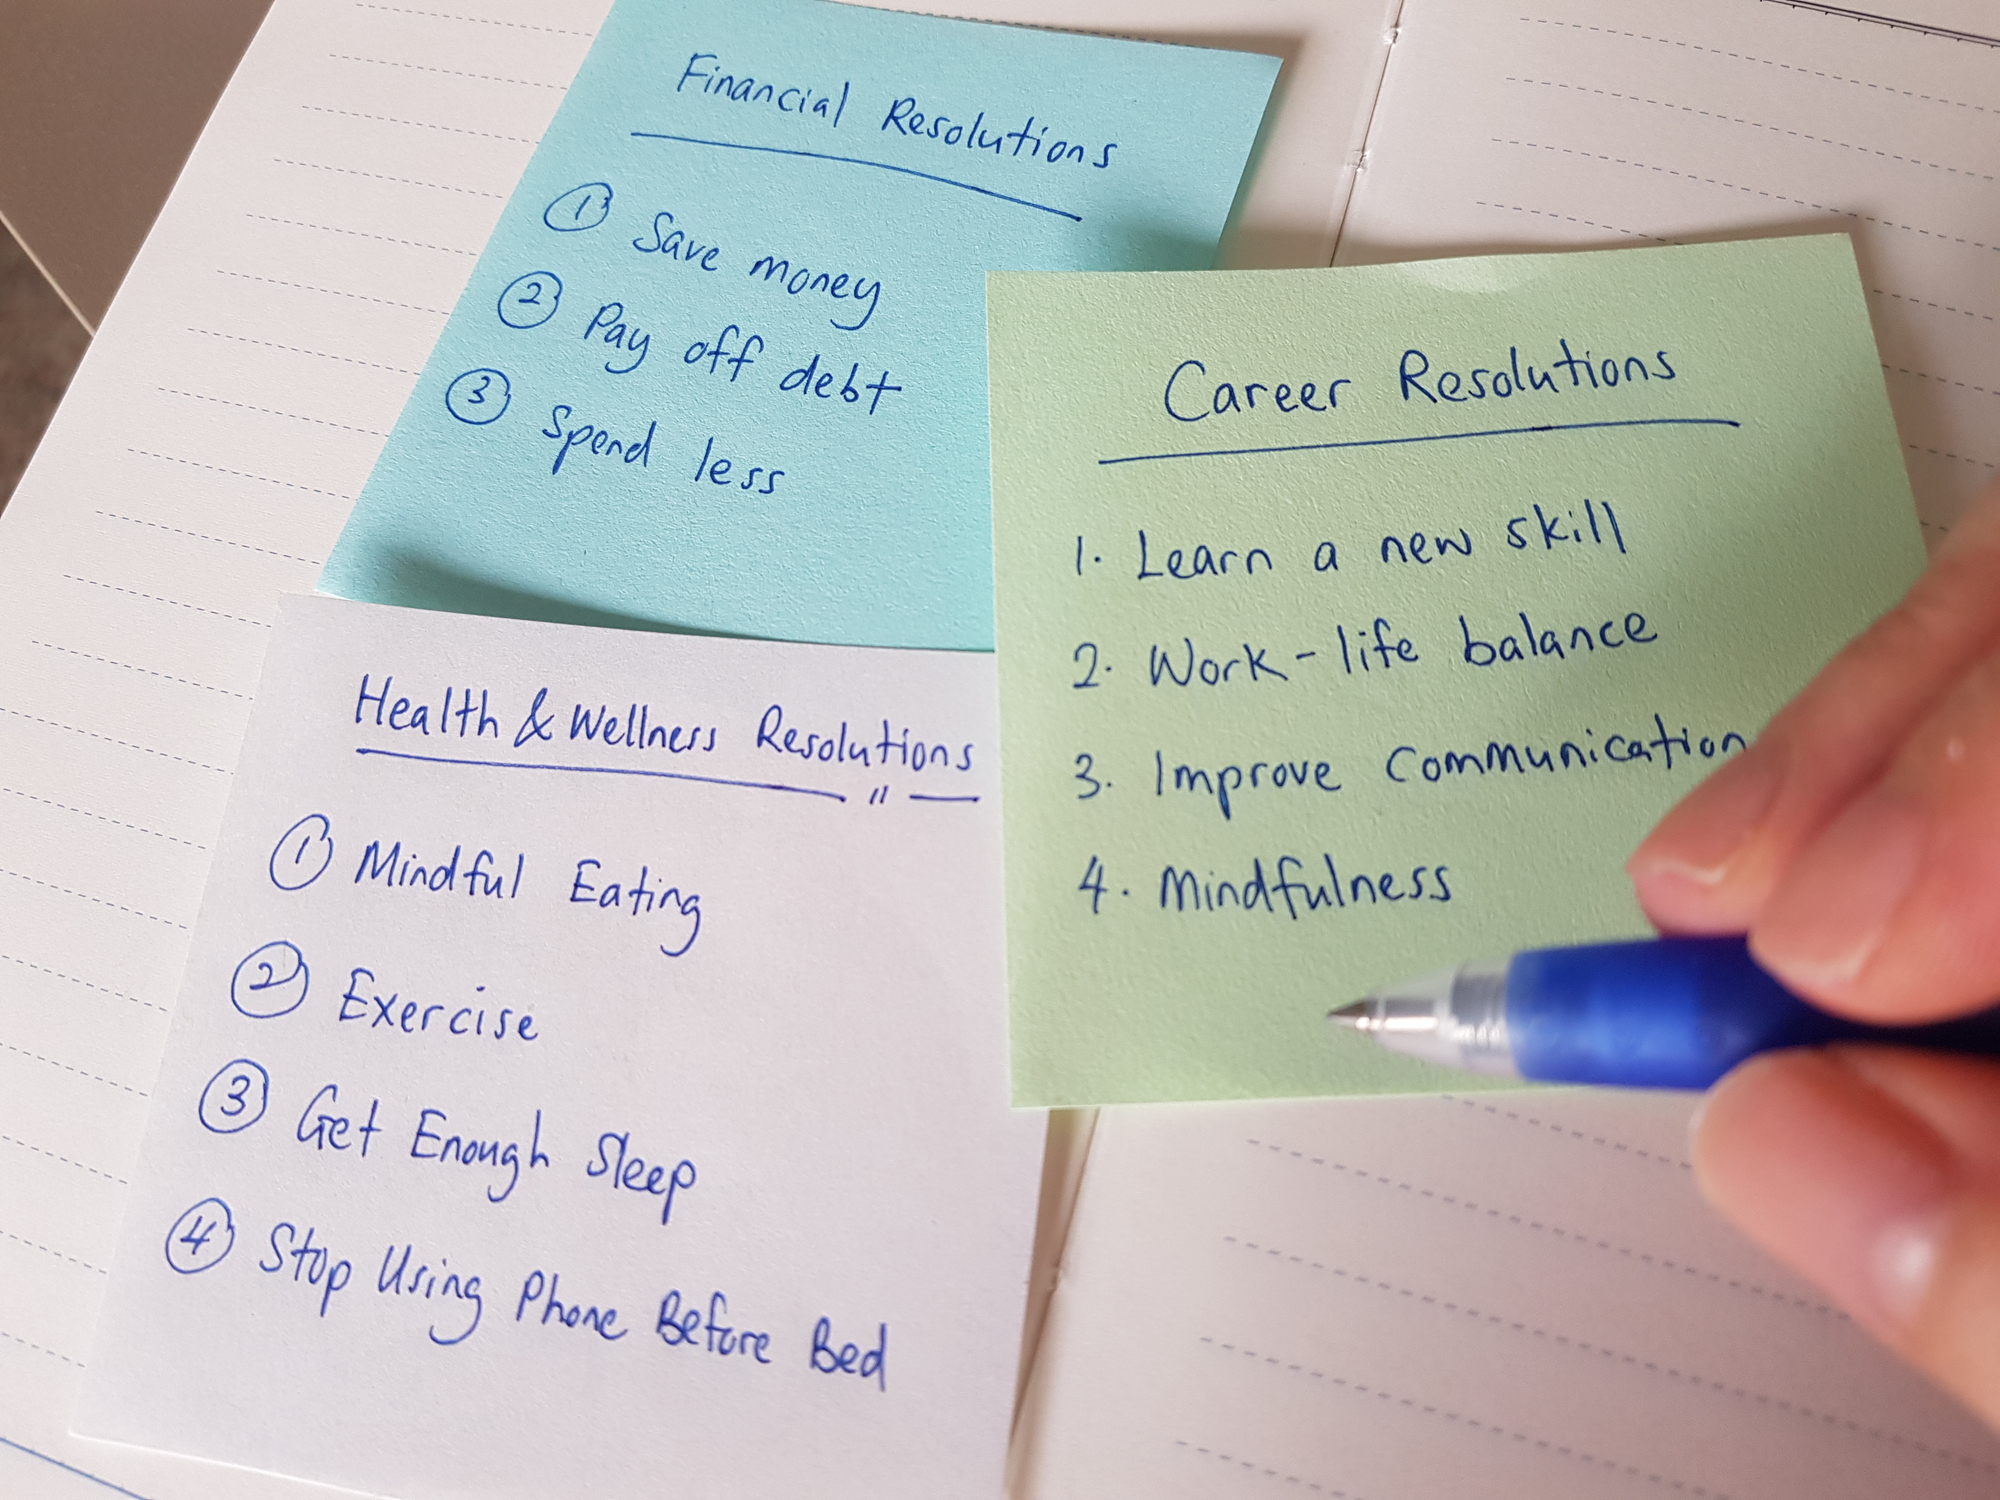 Financial Resolutions
1 Save money
2 Pay off debt
3 Spend less
Career Resolutions
1. Learn a new skill
2. Work-life balance
3. Improve Communication
4. Mindfulness
Health & Wellness Resolutions
1 Mindful Eating
2 Exercise
3 Get Enough Sleep
4 Stop Using Phone Before Bed